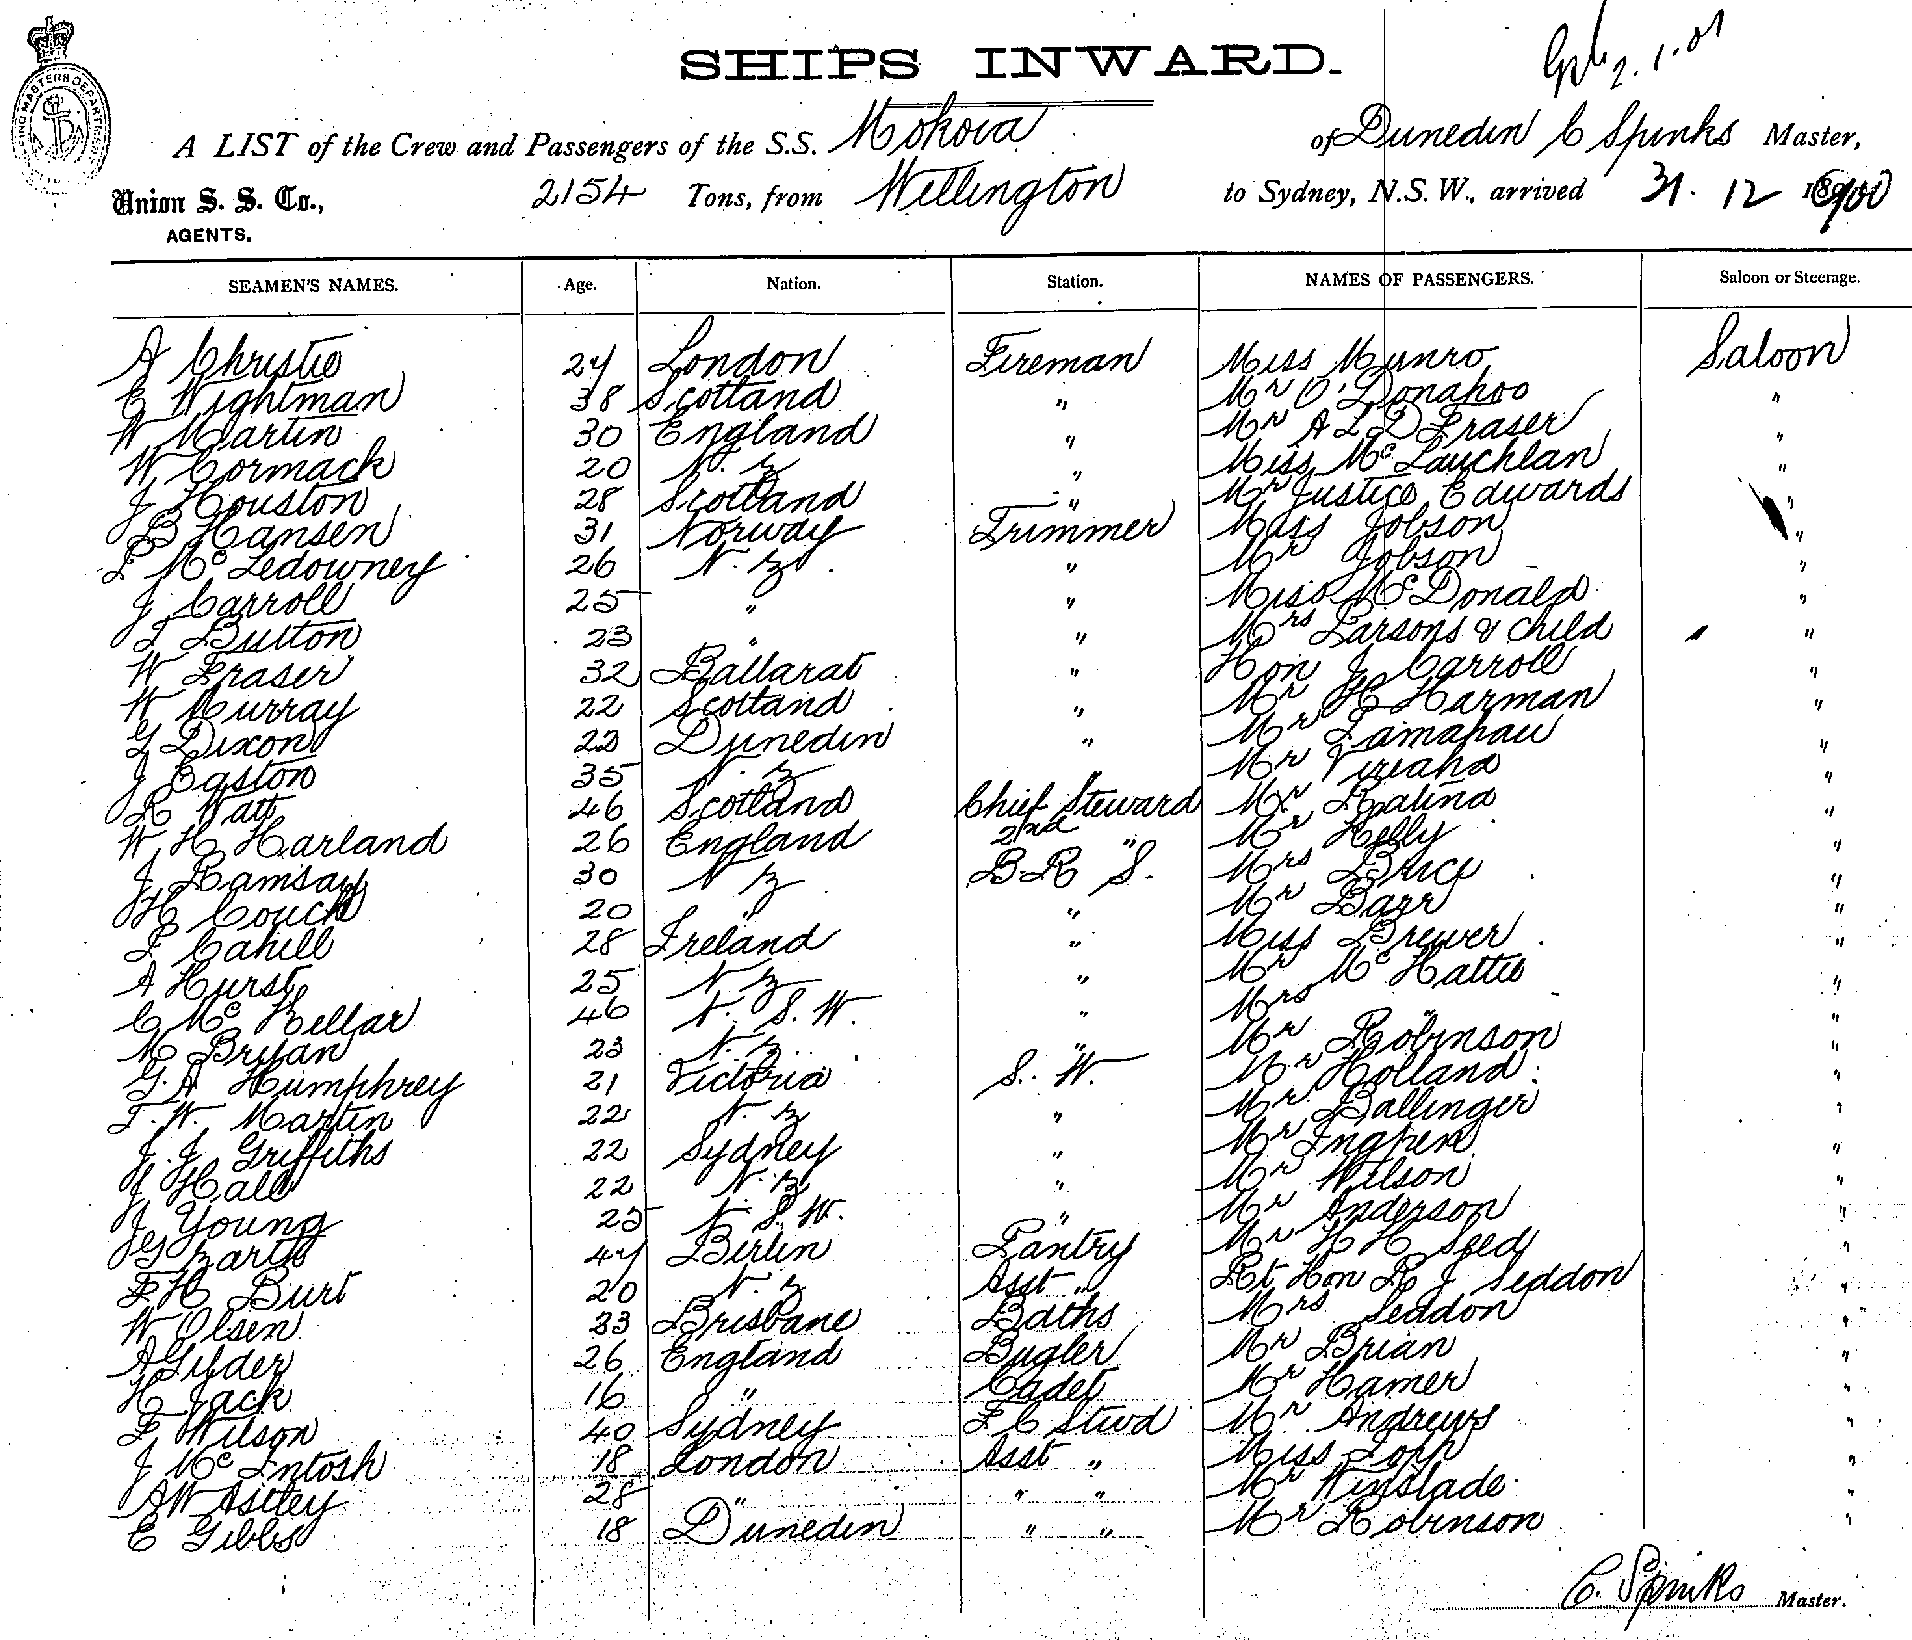 SHIPS INWARD.
2.1.01
A LIST of the Crew and Passengers of the S.S. Mokoia of Dunedin C Spinks Master,
Union S. S. Co., AGENTS. 2154 Tons, from Wellington to Sydney, N.S.W., arrived 31. 12 1900
SEAMEN'S NAMES. Age. Nation. Station. NAMES OF PASSENGERS. Saloon or Steerage.
A Christie 24 London Fireman Miss Munro Saloon
E Wightman 38 Scotland " Mr O'Donahoo "
W Martin 30 England " Mr A L D Fraser "
W Cormack 20 N. Z " Miss McLauchlan "
J Houston 28 Scotland " Mr Justice Edwards "
B Hansen 31 Norway Trimmer Miss Jobson "
26 N. Z. " Mr Jobson "
J Carroll 25 " " Miss McDonald "
T Button 23 " " Mrs Parsons & child "
W Fraser 32 Ballarat " Hon J Carroll "
W Murray 22 Scotland " Mr H Harman "
G Dixon 22 Dunedin " Mr "
J Easton 35 N. Z " Mr "
R Watt 46 Scotland Chief Steward Mr "
W H Harland 26 England 2nd " Mr Kelly "
J Ramsay 30 N Z B.R S. Mrs Brice "
H Couch 20 " " Mr Barr "
F Cahill 28 Ireland " Miss Brewer "
A Hurst 25 N Z " Mr McHattie "
C McKellar 46 N. S. W. " Mrs " "
M Bryan 23 N. Z " Mr Robinson "
G. A Humphrey 21 Victoria S. W. Mr Holland "
F. W. Martin 22 N. Z " Mr Ballinger "
J. J. Griffiths 22 Sydney " Mr "
J Hall 22 N. Z " Mr Wilson "
J Young 25 N S. W. " Mr Anderson "
G Barth 47 Berlin Pantry Mr H H Seed "
F H Burt 20 N. Z Asst " Rt Hon R J Seddon "
W Olsen 33 Brisbane Baths Mrs Seddon "
A Gilder 26 England Bugler Mr Brian "
H Jack 16 " Cadet Mr Hamer "
F Wilson 40 Sydney F C Stwd Mr Andrews "
J McIntosh 18 London Asst " Miss "
A W Astley 28 " " " Mr Winslade "
E Gibbs 18 Dunedin " " Mr Robinson "
C. Spinks Master.